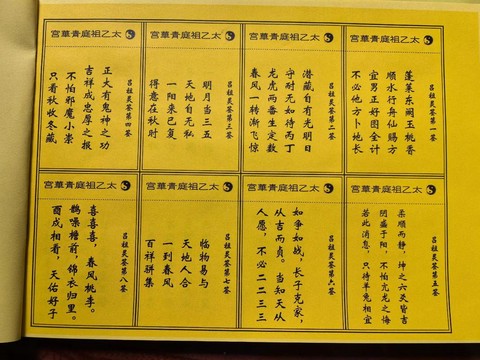 太乙祖庭青華宮
吕祖灵签第一签
蓬莱东阙玉桃香
顺水行舟仙赐方
宜男正好图全计
不必他方卜地长
太乙祖庭青華宮
吕祖灵签第二签
潜藏自有光明日
守耐无如待丙丁
龙虎两番生定数
春风一转渐飞惊
太乙祖庭青華宮
吕祖灵签第三签
明月当三五
天地自无私
一阳来已复
得意在秋时
太乙祖庭青華宮
吕祖灵签第四签
正大有鬼神之功
吉祥成忠厚之报
不怕邪魔小祟
只看秋收冬藏
太乙祖庭青華宮
吕祖灵签第五签
柔顺而静，坤之六爻皆吉
阴盛于阳，不怕亢龙之悔
若此消息，只待羊兔相宜
太乙祖庭青華宮
吕祖灵签第六签
如争如战，长子克家，
从吉而贞。当知天从
人愿，不必一二三三
太乙祖庭青華宮
吕祖灵签第七签
临物易与
天地人合
一到春风
百祥骈集
太乙祖庭青華宮
吕祖灵签第八签
喜喜喜，春风桃李。
鹊噪檐前，锦衣归里。
酉戌相看，天佑好子